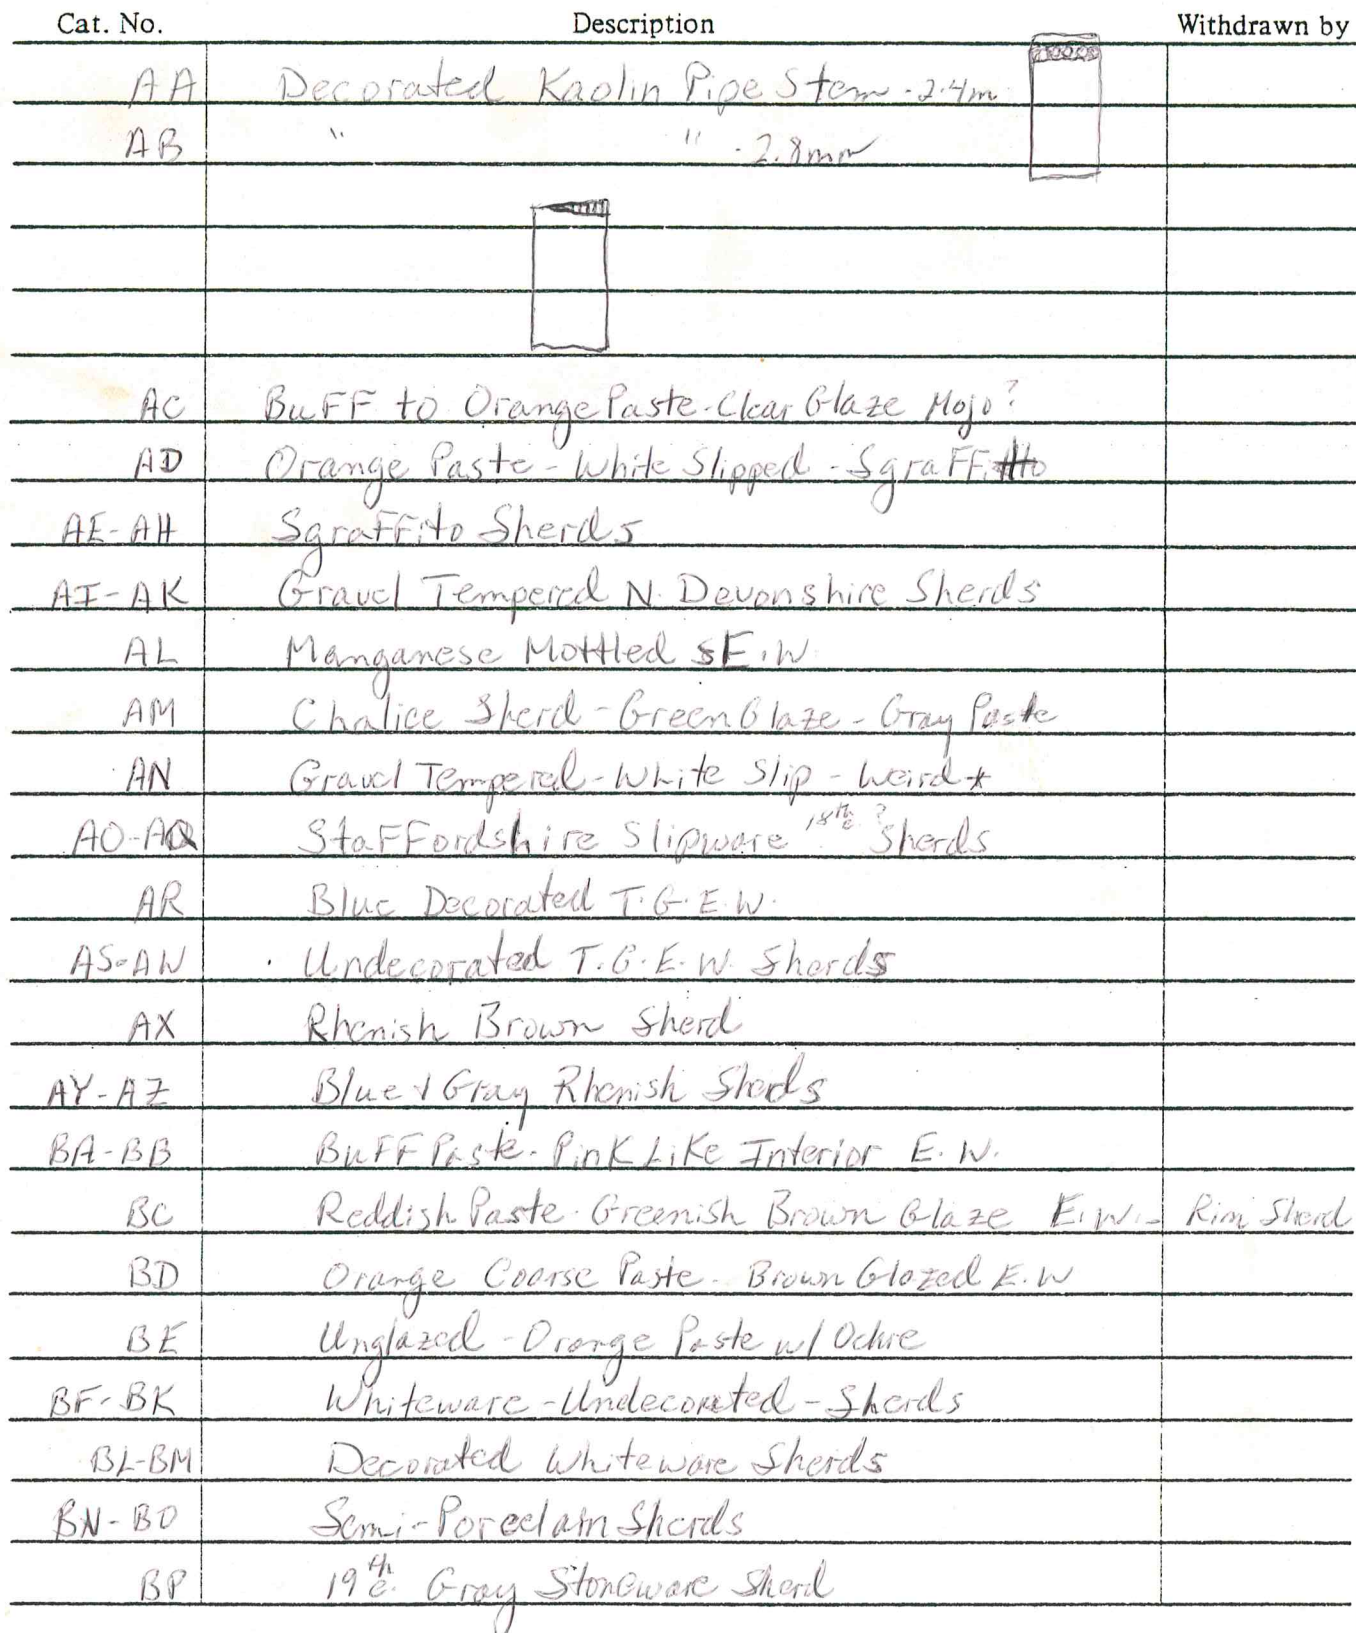 Cat. No. Description Withdrawn by
AA Decorated Kaolin Pipe Stem - 2.4m
AB " " - 2.8mm
AC Buff to Orange Paste - Clear Glaze Mojo?
AD Orange Paste - White Slipped - Sgraffitto
AE-AH Sgraffito Sherds
AI-AK Gravel Tempered N. Devonshire Sherds
AL Manganese Mottled E.W.
AM Chalice Sherd - Green Glaze - Gray Paste
AN Gravel Tempered - White Slip - Weird *
AO-AQ Staffordshire Slipware 18th c. ? Sherds
AR Blue Decorated T.G.E.W.
AS-AW Undecorated T.G.E.W. Sherds
AX Rhenish Brown Sherd
AY-AZ Blue & Gray Rhenish Sherds
BA-BB Buff Paste - Pink Like Interior E.W.
BC Reddish Paste - Greenish Brown Glaze E.W. - Rim Sherd
BD Orange Coarse Paste - Brown Glazed E.W
BE Unglazed - Orange Paste w/ Ochre
BF-BK Whiteware - Undecorated - Sherds
BL-BM Decorated Whiteware Sherds
BN-BO Semi-Porcelain Sherds
BP 19th c. Gray Stoneware Sherd